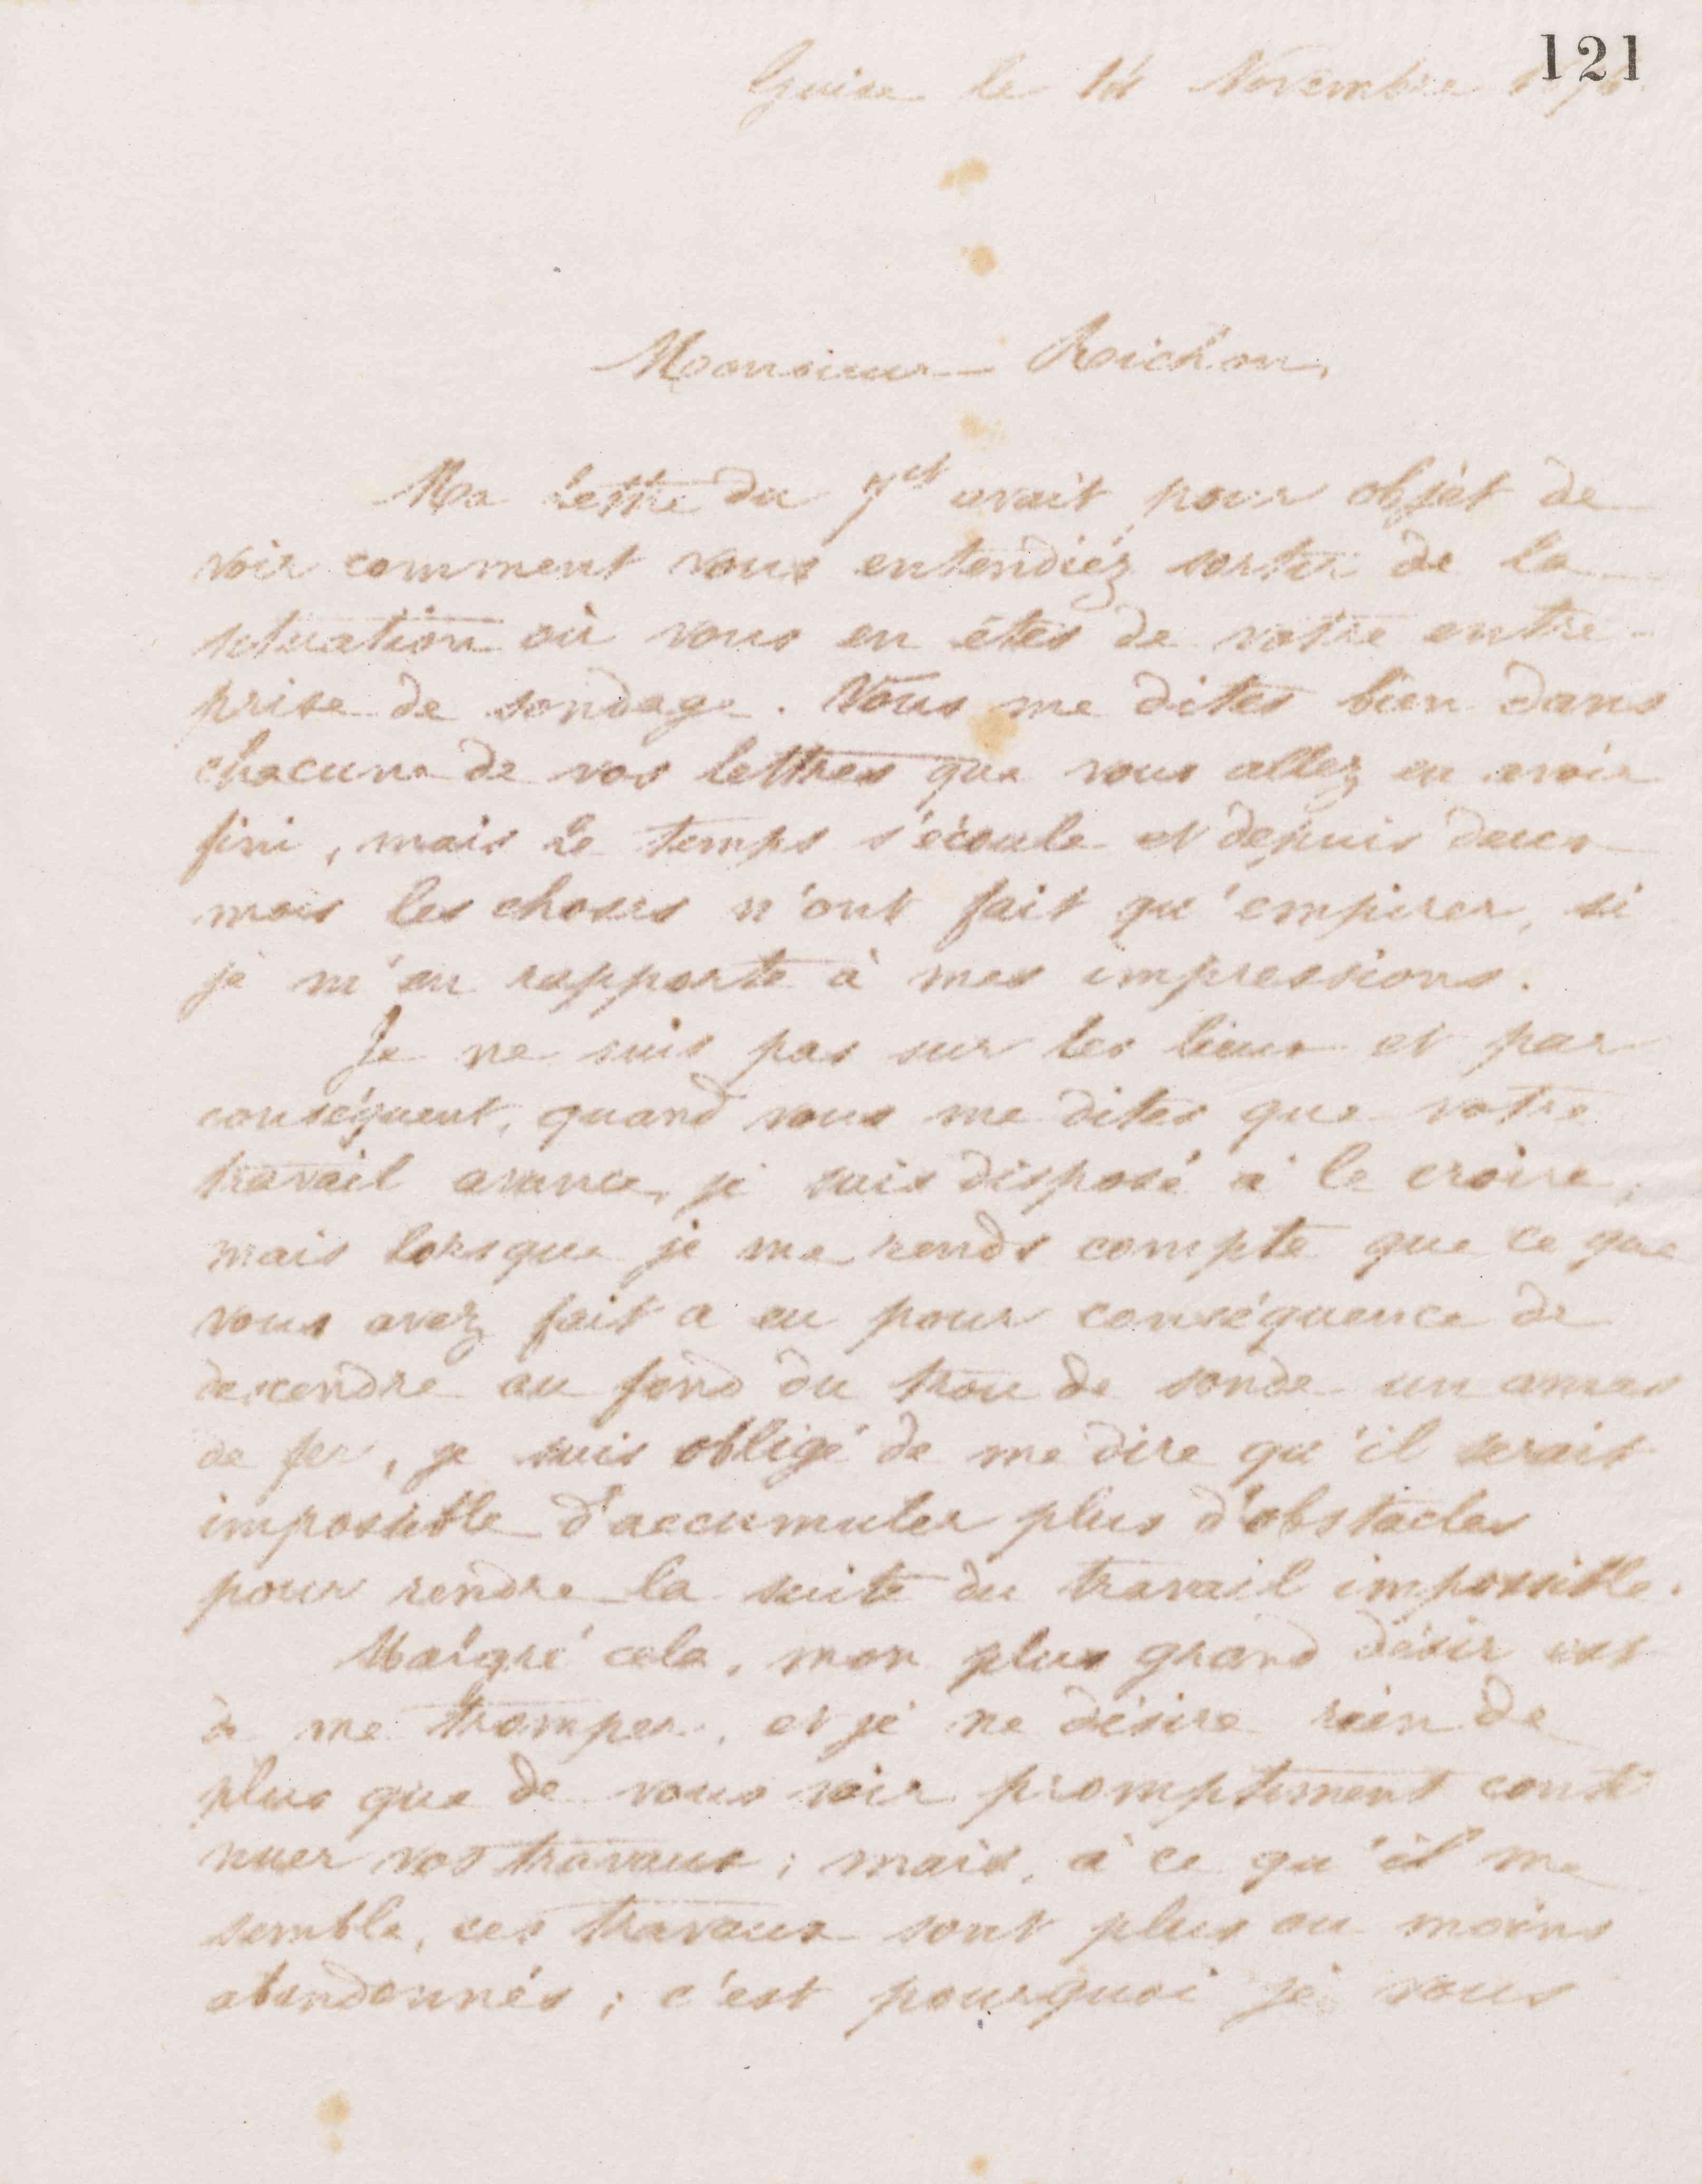 121
Guise le 14 Novembre
Monsieur Roichon,
Ma lettre du 7 ct avait pour objet de
voir comment vous entendiez sortir de la
situation où vous en êtes de votre entre-
prise de sondage. Vous me dites bien dans
chacune de vos lettres que vous allez en avoir
fini, mais le temps s'écoule et depuis deux
mois les choses n'ont fait qu'empirer, si
je m'en rapporte à mes impressions.
Je ne suis pas sur les lieux et par
conséquent, quand vous me dites que votre
travail avance, je suis disposé à le croire;
mais lorsque je me rends compte que ce que
vous avez fait a eu pour conséquence de
descendre au fond du trou de sonde un amas
de fer, je suis obligé de me dire qu'il serait
impossible d'accumuler plus d'obstacles
pour rendre la suite du travail impossible.
Malgré cela, mon plus grand désir est
de me tromper, et je ne désire rien de
plus que de vous voir promptement conti
nuer vos travaux; mais, à ce qu'il me
semble, ces travaux sont plus ou moins
abandonnés; c'est pourquoi je vous